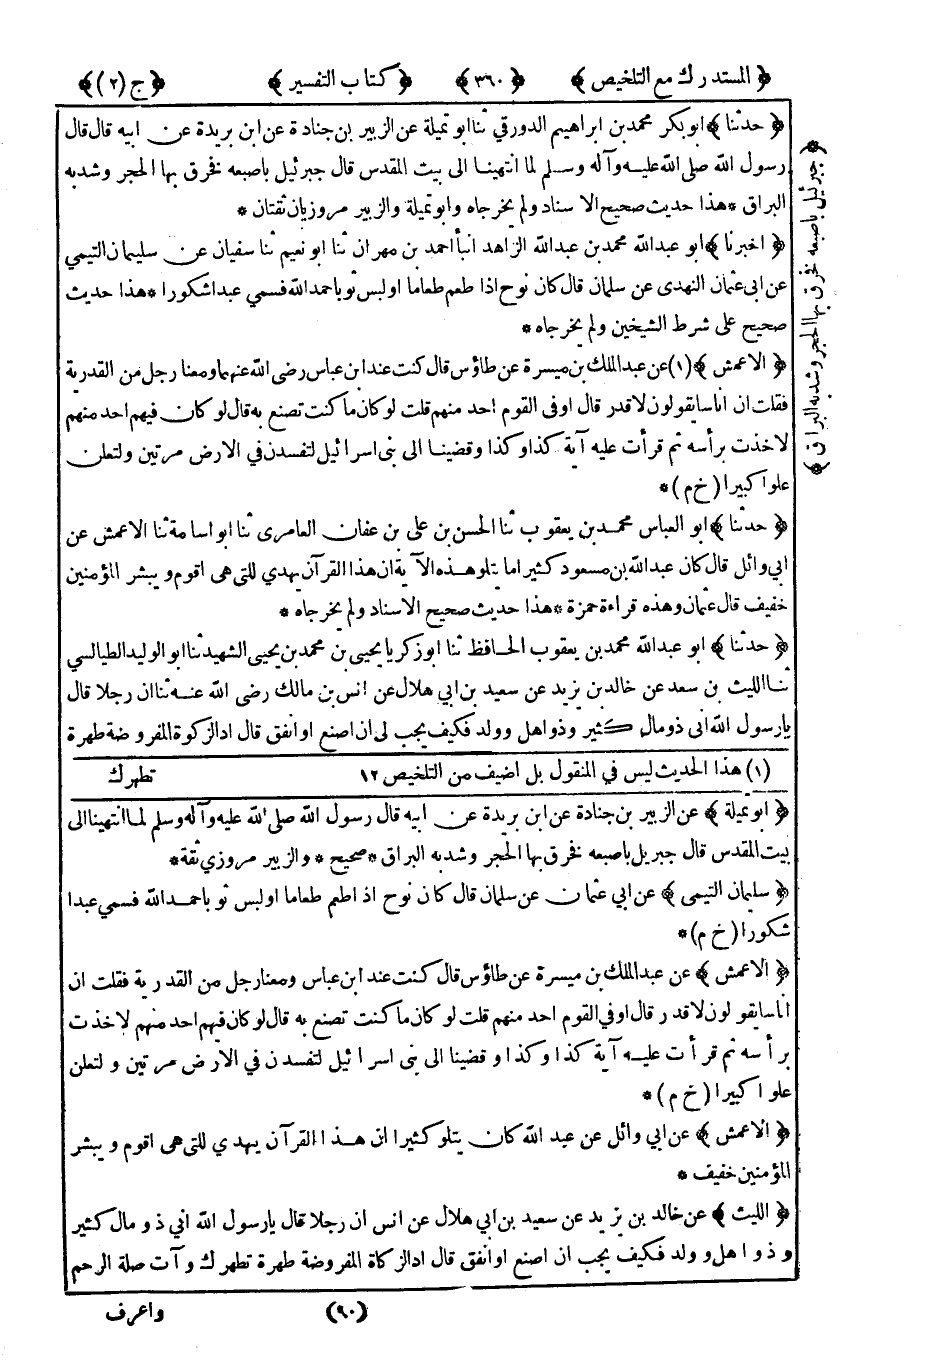 ﴿ المستدرك مع التلخيص ﴾ ﴿ ٣٦٠ ﴾ ﴿ كتاب التفسير ﴾ ﴿ ج (٢) ﴾
﴿ حدثنا ﴾ ابو بكر محمد بن ابراهيم الدورقي ثنا ابو تميلة عن الزبير بن جنادة عن ابن بريدة عن ابيه قال قال
رسول الله صلى الله عليه وآله وسلم لما انتهينا الى بيت المقدس قال جبرئيل باصبعه فخرق بها الحجر وشد به
البراق * هذا حديث صحيح الاسناد ولم يخرجاه وابو تميلة والزبير مروزيان ثقتان *
﴿ اخبرنا ﴾ ابو عبد الله محمد بن عبد الله الزاهد انبأ احمد بن مهران ثنا ابو نعيم ثنا سفيان عن سليمان التيمي
عن ابى عثمان النهدى عن سلمان قال كان نوح اذا طعم طعاما او لبس ثوبا حمد الله فسمي عبدا شكورا * هذا حديث
صحيح على شرط الشيخين ولم يخرجاه *
﴿ الاعمش ﴾ (١) عن عبد الملك بن ميسرة عن طاؤس قال كنت عند ابن عباس رضى الله عنهما ومعنا رجل من القدرية
فقلت ان اناسا يقولون لا قدر قال اوفى القوم احد منهم قلت لو كان ما كنت تصنع به قال لو كان فيهم احد منهم
لاخذت برأسه ثم قرأت عليه آية كذا وكذا وقضينا الى بنى اسرائيل لتفسدن في الارض مرتين ولتعلن
علوا كبيرا (خ م) *
﴿ حدثنا ﴾ ابو العباس محمد بن يعقوب ثنا الحسن بن على بن عفان العامرى ثنا ابو اسامة ثنا الاعمش عن
ابي وائل قال كان عبد الله بن مسعود كثيرا ما يتلو هذه الآية ان هذا القرآن يهدي للتى هى اقوم و يبشر المؤمنين
خفيف قال عثمان وهذه قراءة حمزة * هذا حديث صحيح الاسناد ولم يخرجاه *
﴿ حدثنا ﴾ ابو عبد الله محمد بن يعقوب الحافظ ثنا ابو زكريا يحيى بن محمد بن يحيى الشهيد ثنا ابو الوليد الطيالسي
ثنا الليث بن سعد عن خالد بن يزيد عن سعيد بن ابي هلال عن انس بن مالك رضى الله عنه ثنا ان رجلا قال
يا رسول الله انى ذو مال كثير وذو اهل وولد فكيف يجب لى ان اصنع او انفق قال اد الزكوة المفروضة طهرة
(١) هذا الحديث ليس في المنقول بل اضيف من التلخيص ١٢ تطهرك
﴿ ابو تميلة ﴾ عن الزبير بن جنادة عن ابن بريدة عن ابيه قال رسول الله صلى الله عليه وآله وسلم لما انتهينا الى
بيت المقدس قال جبريل باصبعه فخرق بها الحجر وشد به البراق * صحيح * والزبير مروزي ثقة *
﴿ سليمان التيمى ﴾ عن ابي عثمان عن سلمان قال كان نوح اذ اطعم طعاما او لبس ثوبا حمد الله فسمي عبدا
شكورا (خ م) *
﴿ الاعمش ﴾ عن عبد الملك بن ميسرة عن طاؤس قال كنت عند ابن عباس ومعنا رجل من القدرية فقلت ان
اناسا يقولون لا قدر قال اوفي القوم احد منهم قلت لو كان ما كنت تصنع به قال لو كان فيهم احد منهم لاخذت
برأسه ثم قرأت عليه آية كذا وكذا وقضينا الى بنى اسرائيل لتفسدن في الارض مرتين ولتعلن
علوا كبيرا (خ م) *
﴿ الاعمش ﴾ عن ابي وائل عن عبد الله كان يتلو كثيرا ان هذا القرآن يهدي للتى هى اقوم و يبشر
المؤمنين خفيف *
﴿ الليث ﴾ عن خالد بن يزيد عن سعيد بن ابي هلال عن انس ان رجلا قال يا رسول الله اني ذو مال كثير
و ذو اهل و ولد فكيف يجب ان اصنع او انفق قال اد الزكاة المفروضة طهرة تطهرك وآت صلة الرحم
(٩٠) واعرف
﴿ جبرئيل باصبعه فخرق بها الحجر وشد به البراق ﴾